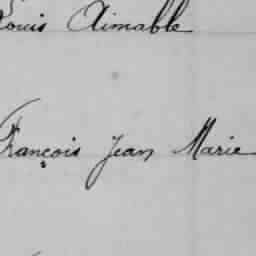 Louis Aimable
François Jean Marie